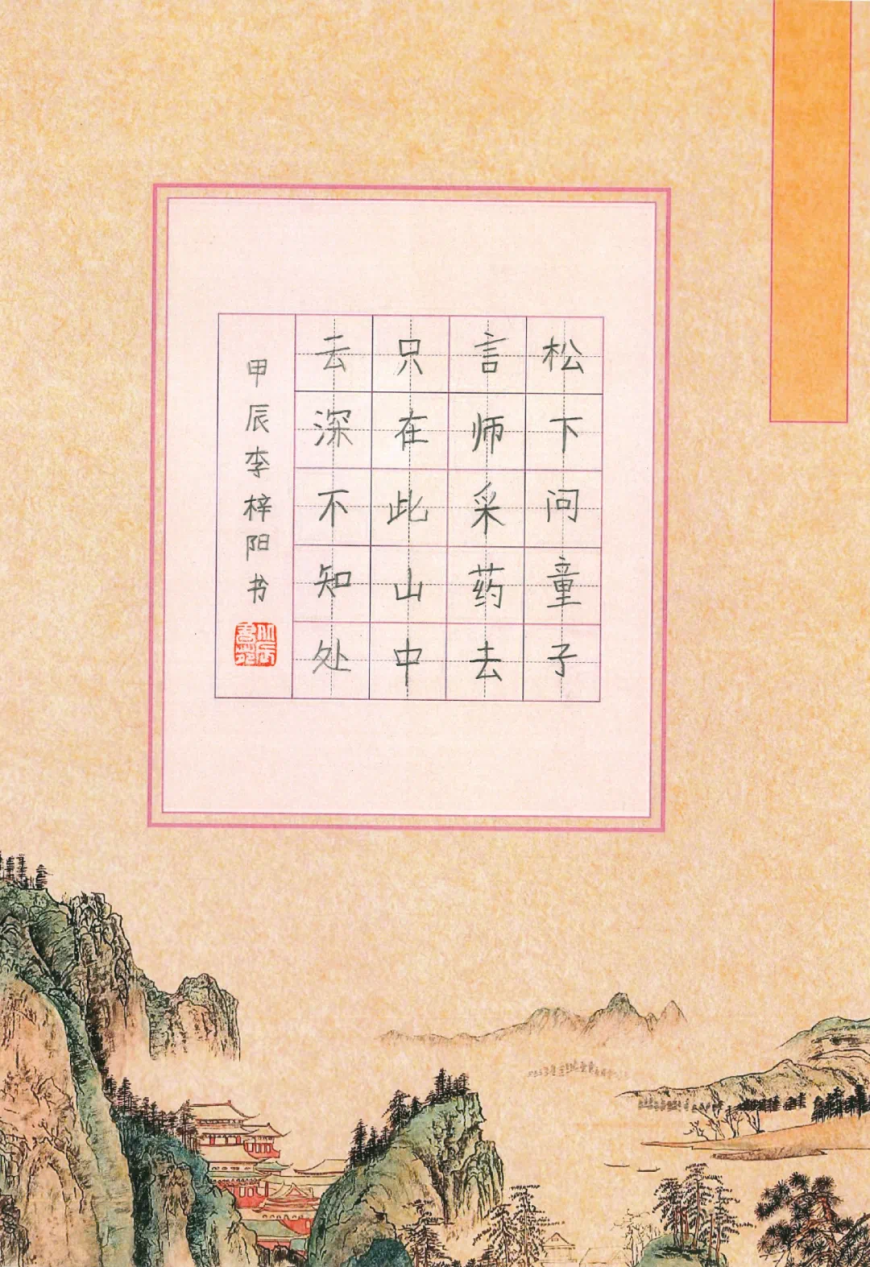 松下问童子
言师采药去
只在此山中
云深不知处
甲辰李梓阳书